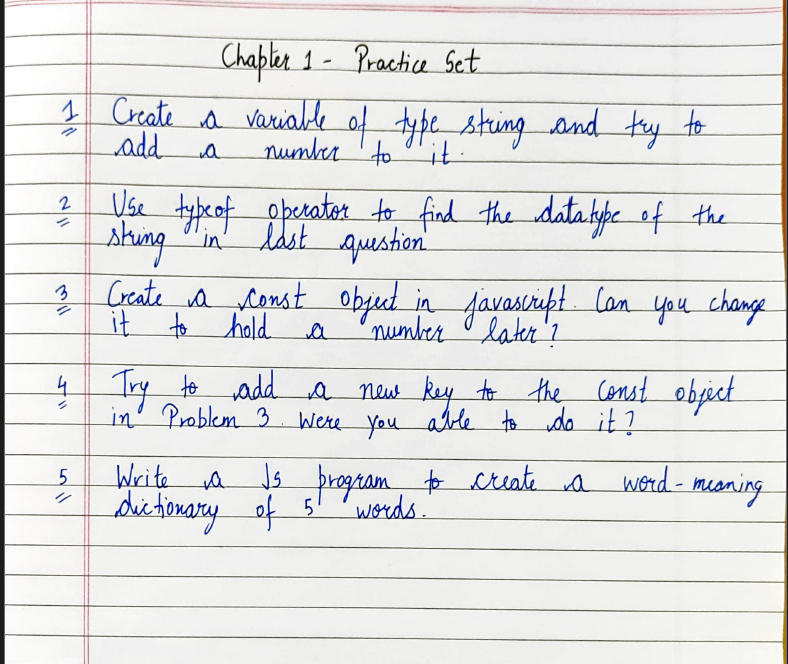 Chapter 1 - Practice Set
1 Create a variable of type string and try to
add a number to it.
2 Use typeof operator to find the datatype of the
string in last question
3 Create a const object in javascript. Can you change
it to hold a number later?
4 Try to add a new key to the const object
in Problem 3. Were you able to do it?
5 Write a JS program to create a word-meaning
dictionary of 5 words.